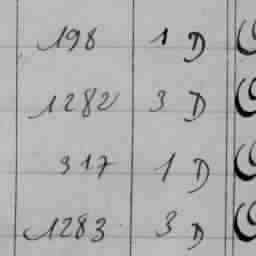 198 1 D
1282 3 D
317 1 D
1283 3 D